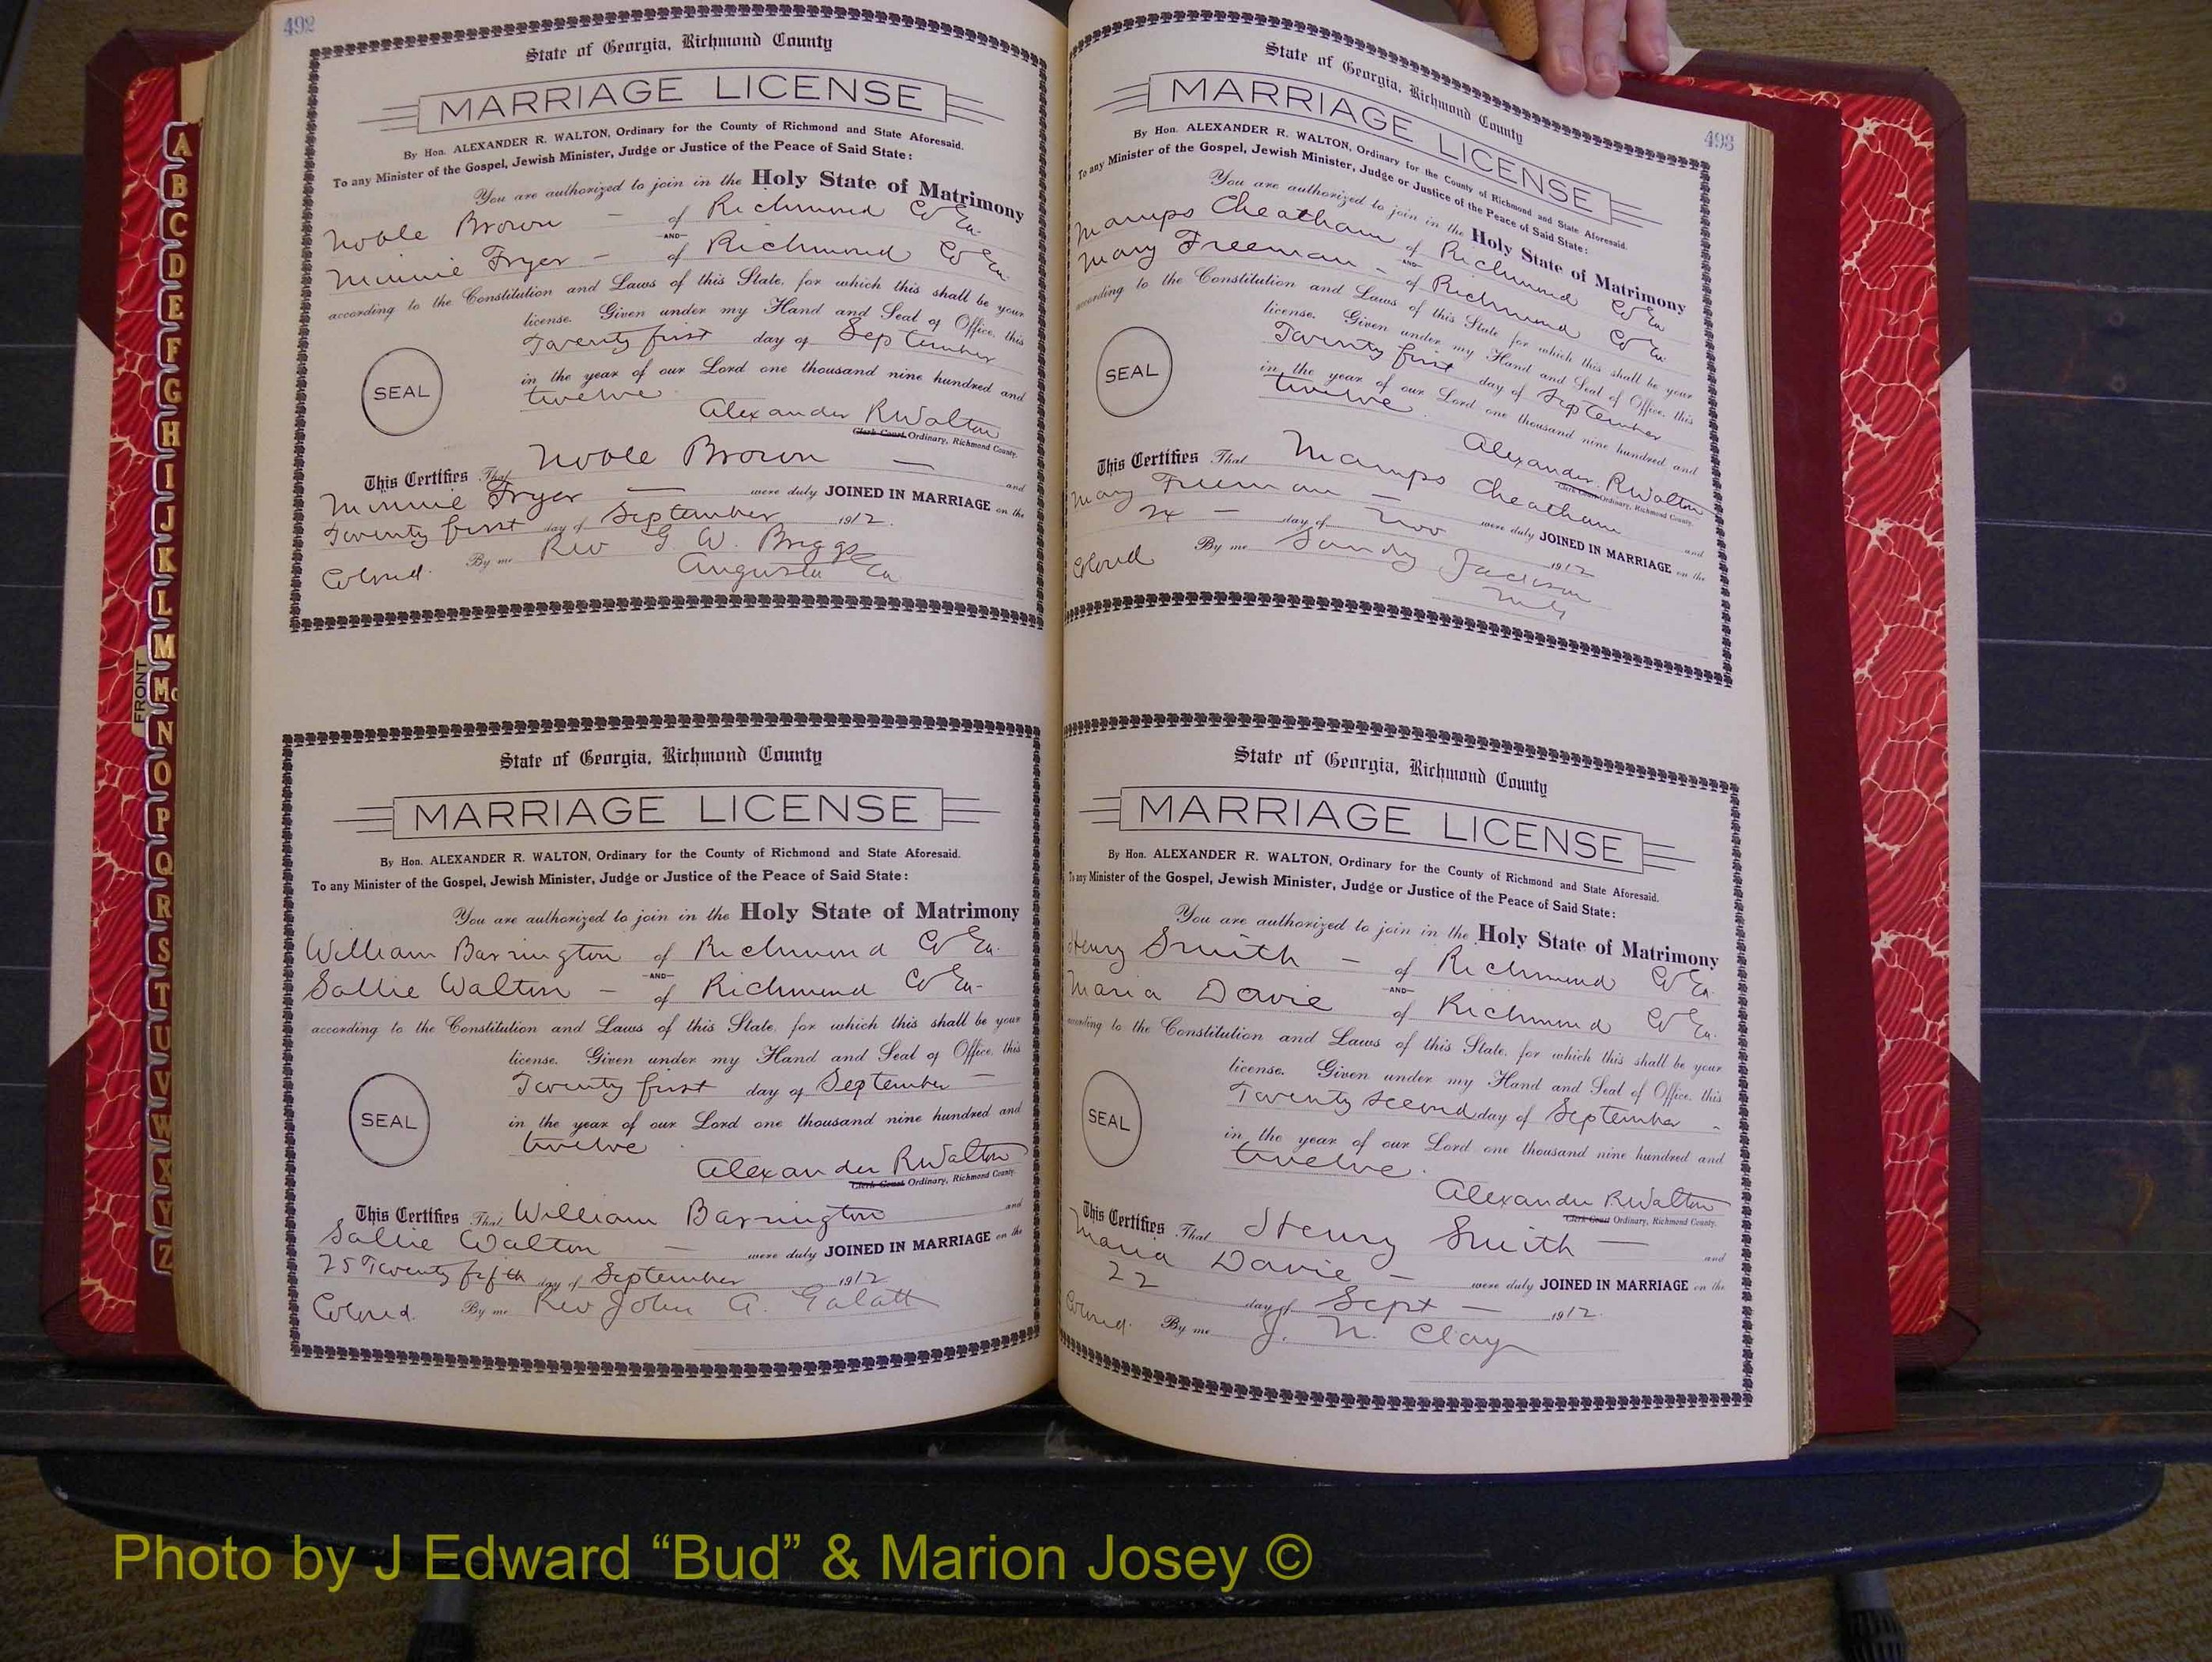 492
State of Georgia, Richmond County
MARRIAGE LICENSE
By Hon. ALEXANDER R. WALTON, Ordinary for the County of Richmond and State Aforesaid.
To any Minister of the Gospel, Jewish Minister, Judge or Justice of the Peace of Said State:
You are authorized to join in the Holy State of Matrimony
Noble Brown - of Richmond Co Ga.
AND
Minnie Fryer - of Richmond Co Ga.
according to the Constitution and Laws of this State, for which this shall be your
license. Given under my Hand and Seal of Office, this
Twenty first day of September
in the year of our Lord one thousand nine hundred and
SEAL
twelve
Alexander R Walton
Clerk Court Ordinary, Richmond County.
This Certifies That Noble Brown - and
Minnie Fryer - were duly JOINED IN MARRIAGE on the
Twenty first day of September 1912.
Colored. By me Rev G. W. Briggs
Augusta Ga
State of Georgia, Richmond County
MARRIAGE LICENSE
By Hon. ALEXANDER R. WALTON, Ordinary for the County of Richmond and State Aforesaid.
To any Minister of the Gospel, Jewish Minister, Judge or Justice of the Peace of Said State:
You are authorized to join in the Holy State of Matrimony
William Barrington of Richmond Co Ga.
AND
Sallie Walton - of Richmond Co Ga-
according to the Constitution and Laws of this State, for which this shall be your
license. Given under my Hand and Seal of Office, this
Twenty first day of September -
in the year of our Lord one thousand nine hundred and
SEAL
twelve
Alexander R Walton
Clerk Court Ordinary, Richmond County.
This Certifies That William Barrington and
Sallie Walton - were duly JOINED IN MARRIAGE on the
25 Twenty fifth day of September 1912
Colored. By me Rev John A. Galatt
493
State of Georgia, Richmond County
MARRIAGE LICENSE
By Hon. ALEXANDER R. WALTON, Ordinary for the County of Richmond and State Aforesaid.
To any Minister of the Gospel, Jewish Minister, Judge or Justice of the Peace of Said State:
You are authorized to join in the Holy State of Matrimony
Mamps Cheatham of Richmond Co Ga
AND
Mary Freeman - of Richmond Co Ga.
according to the Constitution and Laws of this State, for which this shall be your
license. Given under my Hand and Seal of Office, this
Twenty first day of September
in the year of our Lord one thousand nine hundred and
SEAL
twelve.
Alexander R Walton
Clerk Court Ordinary, Richmond County.
This Certifies That Mamps Cheatham and
Mary Freeman - were duly JOINED IN MARRIAGE on the
24 - day of Nov 1912
Colored By me Sandy Jackson
State of Georgia, Richmond County
MARRIAGE LICENSE
By Hon. ALEXANDER R. WALTON, Ordinary for the County of Richmond and State Aforesaid.
To any Minister of the Gospel, Jewish Minister, Judge or Justice of the Peace of Said State:
You are authorized to join in the Holy State of Matrimony
Henry Smith - of Richmond Co Ga.
AND
Maria Davie of Richmond Co Ga.
according to the Constitution and Laws of this State, for which this shall be your
license. Given under my Hand and Seal of Office, this
Twenty second day of September -
in the year of our Lord one thousand nine hundred and
SEAL
twelve.
Alexander R Walton
Clerk Court Ordinary, Richmond County.
This Certifies That Henry Smith - and
Maria Davie - were duly JOINED IN MARRIAGE on the
22 day of Sept - 1912.
Colored. By me J. N. Clay
FRONT
A
B
C
D
E
F
G
H
I
J
K
L
M
Mc
N
O
P
Q
R
S
T
U
V
W
X
Y
Z
Photo by J Edward “Bud” & Marion Josey ©